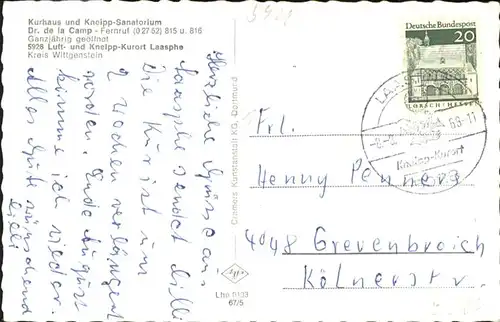 Kurhaus und Kneipp-Sanatorium
Dr. de la Camp - Fernruf (0 27 52) 815 u. 816
Ganzjährig geöffnet
5928 Luft- und Kneipp-Kurort Laasphe
Kreis Wittgenstein
Herzliche Grüsse aus
Laasphe sendet Lilli
Die Kur ist um
2 Wochen verlängert
worden. Ende August
komme ich wieder.
Alles Gute wünschend
Lilli
Cramers Kunstanstalt KG, Dortmund
Lhe 0133
67/5
Deutsche Bundespost
20
LORSCH/HESSEN
Kneipp-Kurort
Frl.
Henny Penners
4048 Grevenbroich
Kölnerstr.